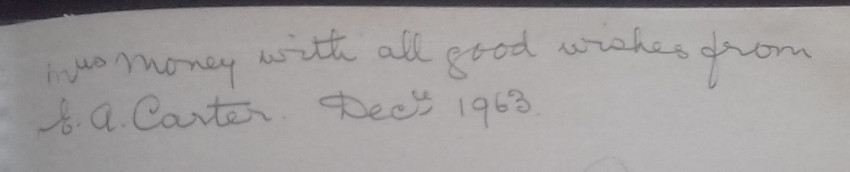 Mrs Money with all good wishes from
E. A. Carter. Decr 1963.